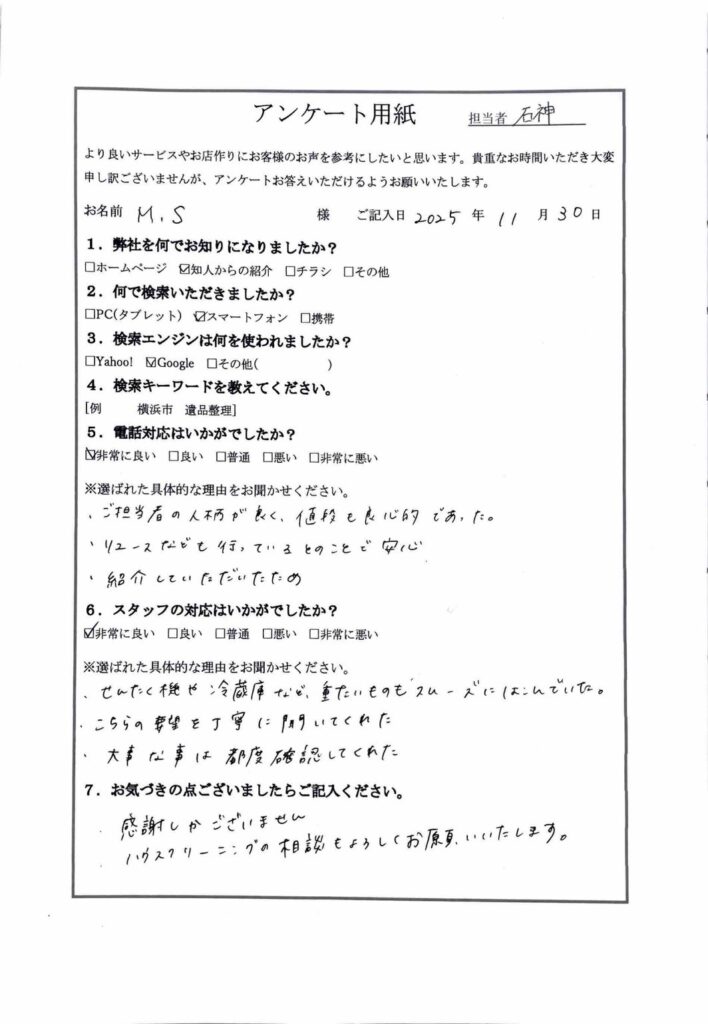 アンケート用紙 担当者 石神
より良いサービスやお店作りにお客様のお声を参考にしたいと思います。貴重なお時間いただき大変
申し訳ございませんが、アンケートお答えいただけるようお願いいたします。
お名前 M.S 様 ご記入日 2025 年 11 月 30 日
1．弊社を何でお知りになりましたか？
□ホームページ ☑知人からの紹介 □チラシ □その他
2．何で検索いただきましたか？
□PC(タブレット) ☑スマートフォン □携帯
3．検索エンジンは何を使われましたか？
□Yahoo! ☑Google □その他( )
4．検索キーワードを教えてください。
[例 横浜市 遺品整理]
5．電話対応はいかがでしたか？
☑非常に良い □良い □普通 □悪い □非常に悪い
※選ばれた具体的な理由をお聞かせください。
・ご担当者の人柄が良く、値段も良心的であった。
・リユースなども行っているとのことで安心
・紹介していただいたため
6．スタッフの対応はいかがでしたか？
☑非常に良い □良い □普通 □悪い □非常に悪い
※選ばれた具体的な理由をお聞かせください。
・せんたく機や冷蔵庫など、重たいものもスムーズにはこんでいた。
・こちらの要望を丁寧に聞いてくれた
・大事な事は都度確認してくれた
7．お気づきの点ございましたらご記入ください。
・感謝しかございません
・ハウスクリーニングの相談もよろしくお願いいたします。